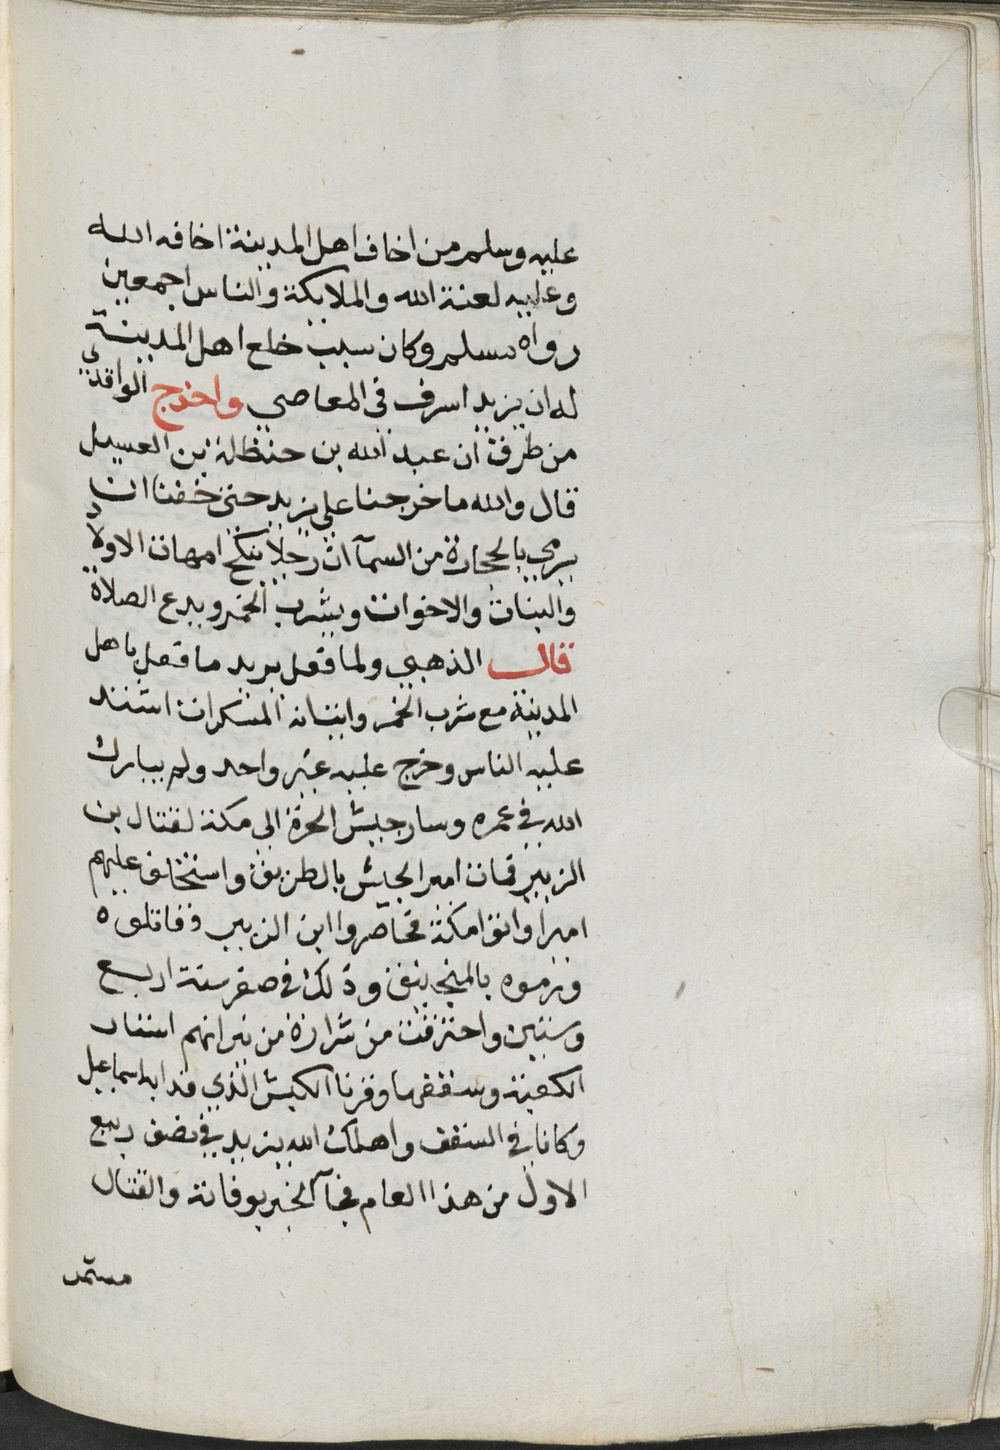 عليه وسلم من اخاف اهل المدينة اخافه الله
وعليه لعنة الله والملايكة والناس اجمعين
رواه مسلم وكان سبب خلع اهل المدينة
له ان يزيد اسرف في المعاصي واخرج الواقدي
من طرق ان عبد الله بن حنظلة بن الغسيل
قال والله ما خرجنا على يزيد حتى خفنا ان
يرمي بالحجارة من السمآ ان رجلا ينكح امهات الاولاد
والبنات والاخوات ويشرب الخمر ويدع الصلاة
قال الذهبي ولما فعل يزيد ما فعل باهل
المدينة مع شرب الخمر واتيانه المنكرات اشتد
عليه الناس وخرج عليه غير واحد ولم يبارك
الله في عمره وسار جيش الحرة الى مكة لقتال بن
الزبير فمات امير الجيش بالطريق واستخلف عليهم
اميرا واتوا مكة فحاصروا ابن الزبير وقاتلوه
ورموه بالمنجنيق وذلك في صفر سنة اربع
وستين واحترقت من شرارة من نيرانهم استار
الكعبة وسقفها وقرنا الكبش الذي فدا به اسماعيل
وكانا في السقف واهلك الله يزيد في نصف ربيع
الاول من هذا العام فجآ الخبر بوفاته والقتال
مستمر